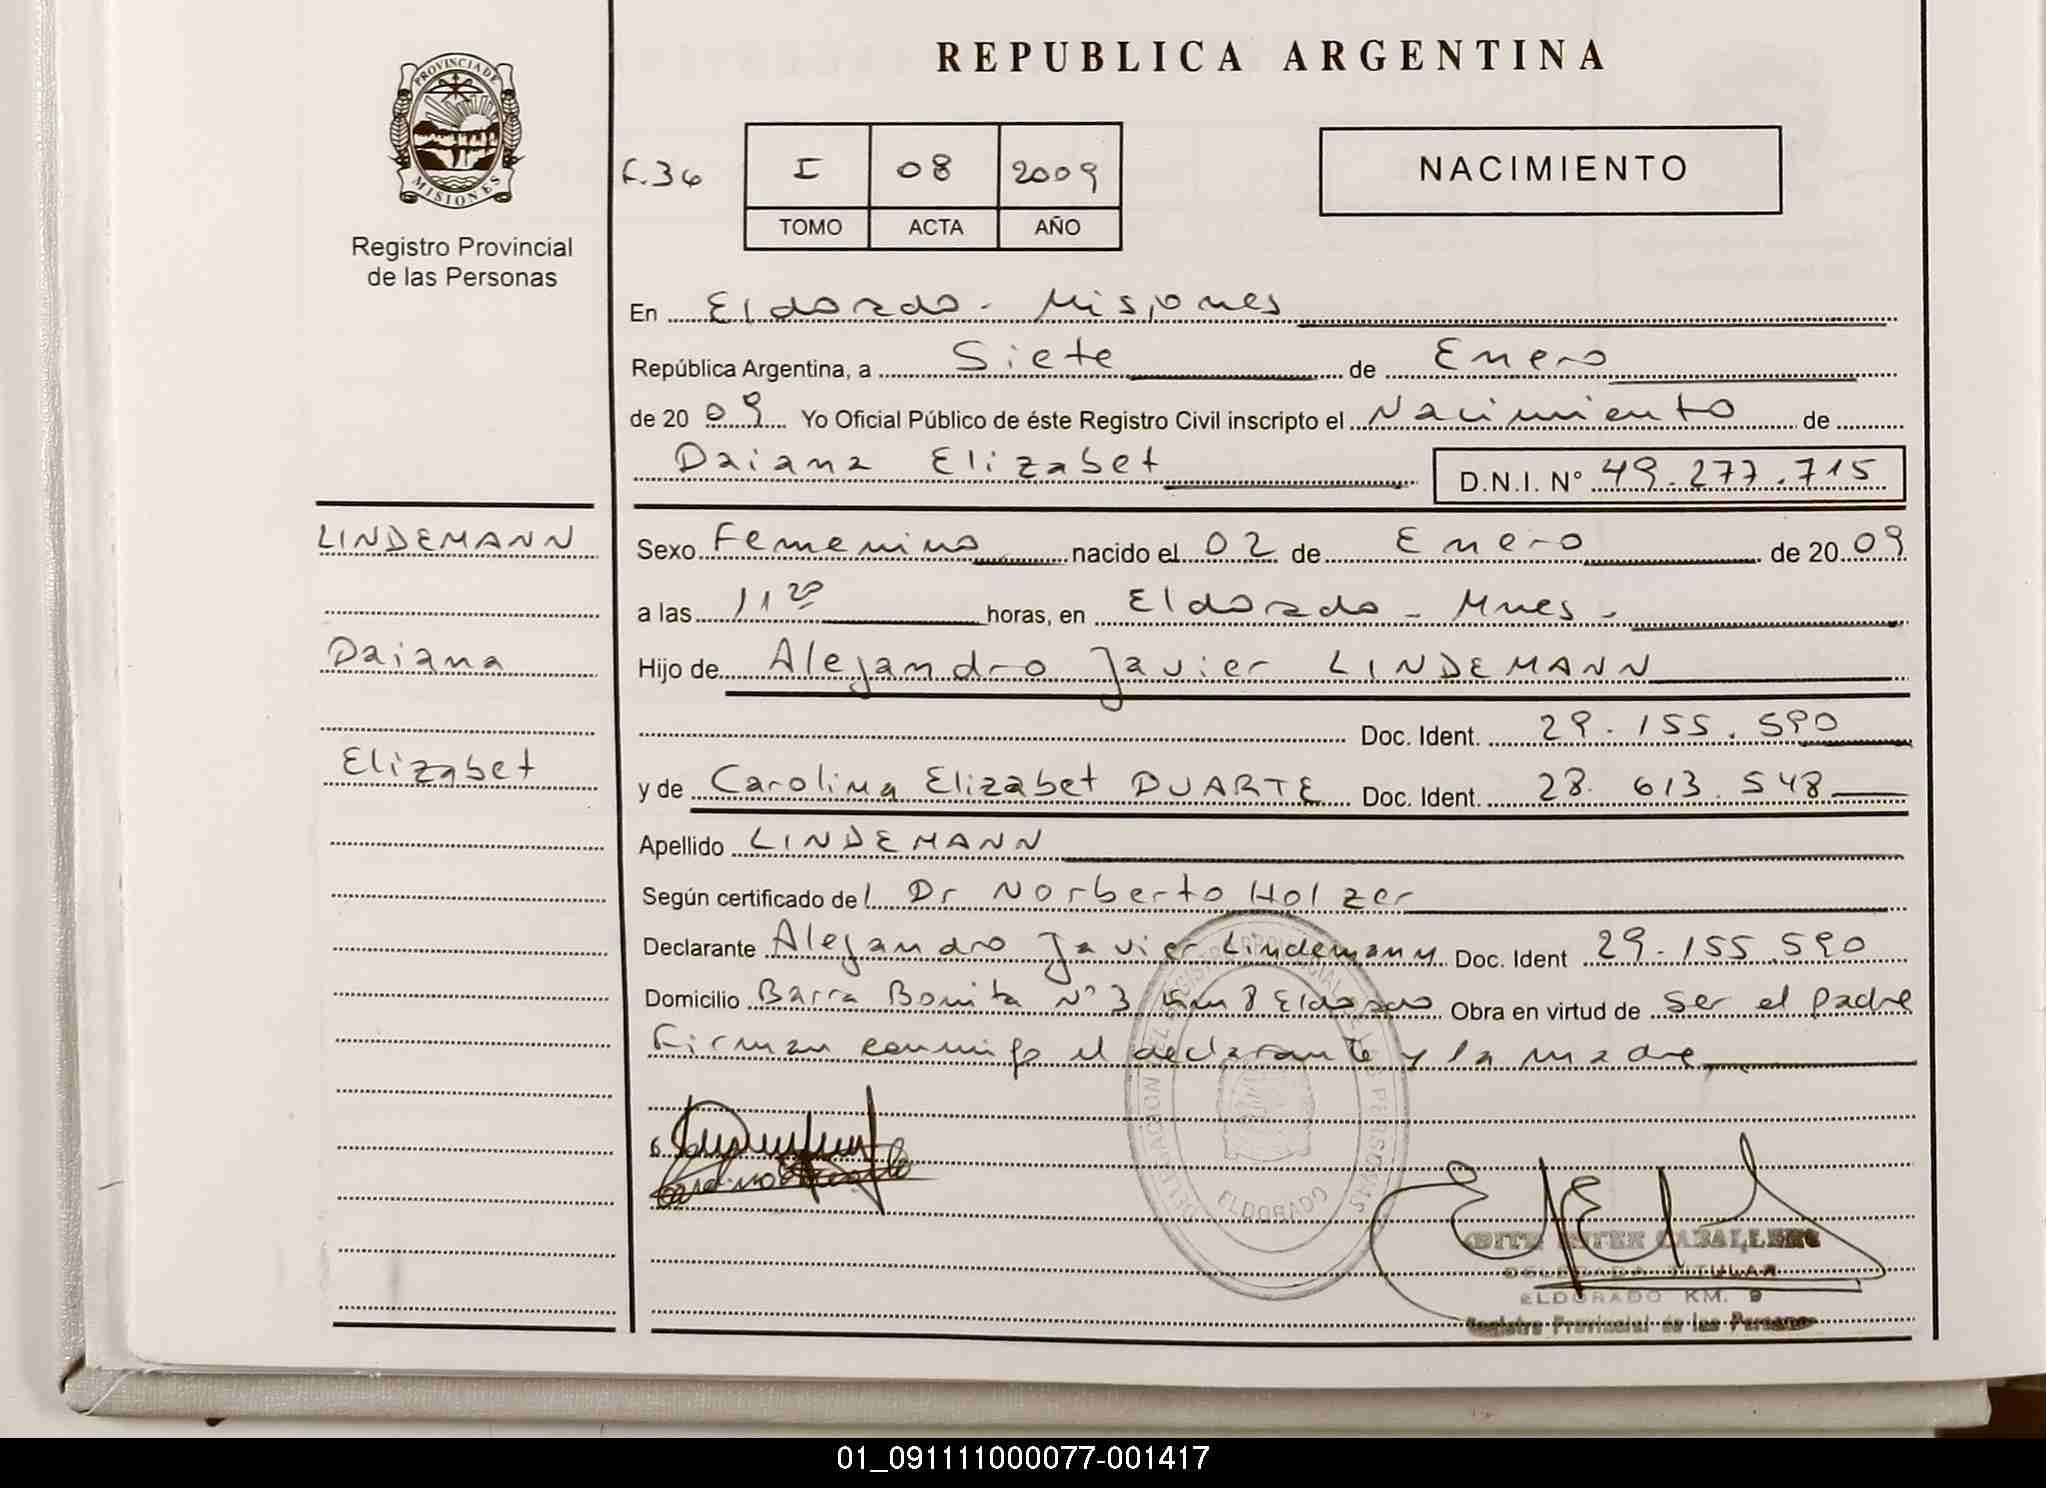 REPUBLICA ARGENTINA
PROVINCIA DE
MISIONES
Registro Provincial
de las Personas
F.36
I 08 2009
TOMO ACTA AÑO
NACIMIENTO
En Eldorado - Misiones
República Argentina, a Siete de Enero
de 2009 Yo Oficial Público de éste Registro Civil inscripto el Nacimiento de
Daiana Elizabet D.N.I. N° 49.277.715
LINDEMANN
Daiana
Elizabet
Sexo Femenino nacido el 02 de Enero de 2009
a las 11 20 horas, en Eldorado - Mnes -
Hijo de Alejandro Javier LINDEMANN
Doc. Ident. 29.155.590
y de Carolina Elizabet DUARTE Doc. Ident. 28.613.548
Apellido LINDEMANN
Según certificado del Dr Norberto Holzer
Declarante Alejandro Javier Lindemann Doc. Ident 29.155.590
Domicilio Barra Bonita N° 3 Km 8 Eldorado Obra en virtud de ser el padre
Firman conmigo el declarante y la madre
DELEGACION DEL REGISTRO PROVINCIAL DE LAS PERSONAS
ELDORADO
CABALLERO
DELEGADA TITULAR
ELDORADO KM. 9
Registro Provincial de las Personas
01_091111000077-001417